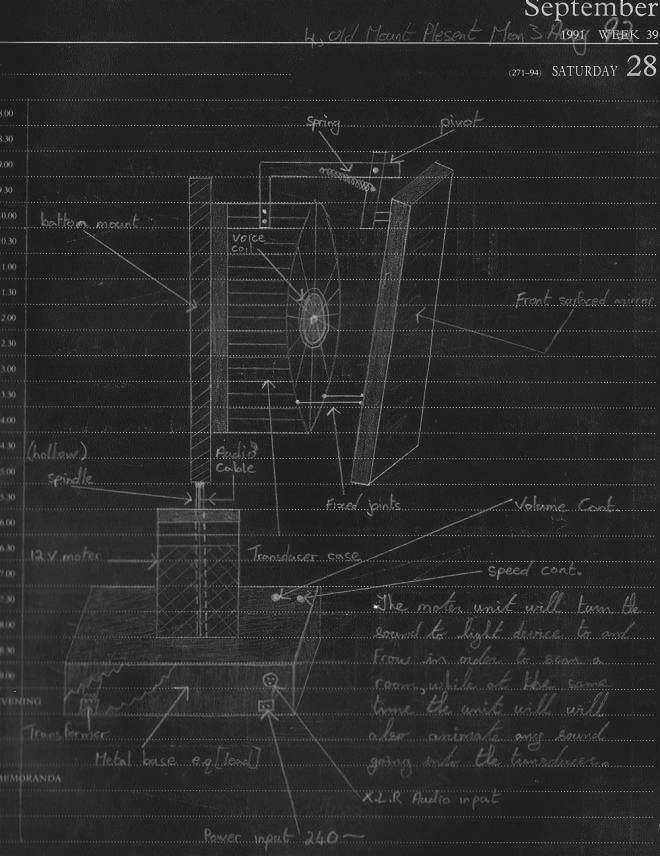 September
Old Mount Plesent Mon 3 Aug 92
1991 WEEK 39
(271–94) SATURDAY 28
Spring
pivot
8.00
8.30
9.00
9.30
10.00
bottom mount
voice
coil
10.30
11.00
1.30
Front surfaced mirror
2.00
2.30
3.00
3.30
4.00
4.30
(hollow)
Audio
Cable
5.00
spindle
5.30
Fixed joints
Volume Cont.
6.00
6.30
12V moter
Transducer case
7.00
speed cont.
7.30
The moter unit will turn the
8.00
sound to light device to and
8.30
From in order to scan a
9.00
room, while at the same
EVENING
time the unit will will
Transformer
also animate any sound
Metal base e.g [lead]
going into the transducer.
MEMORANDA
X.L.R Audio input
Power input 240~